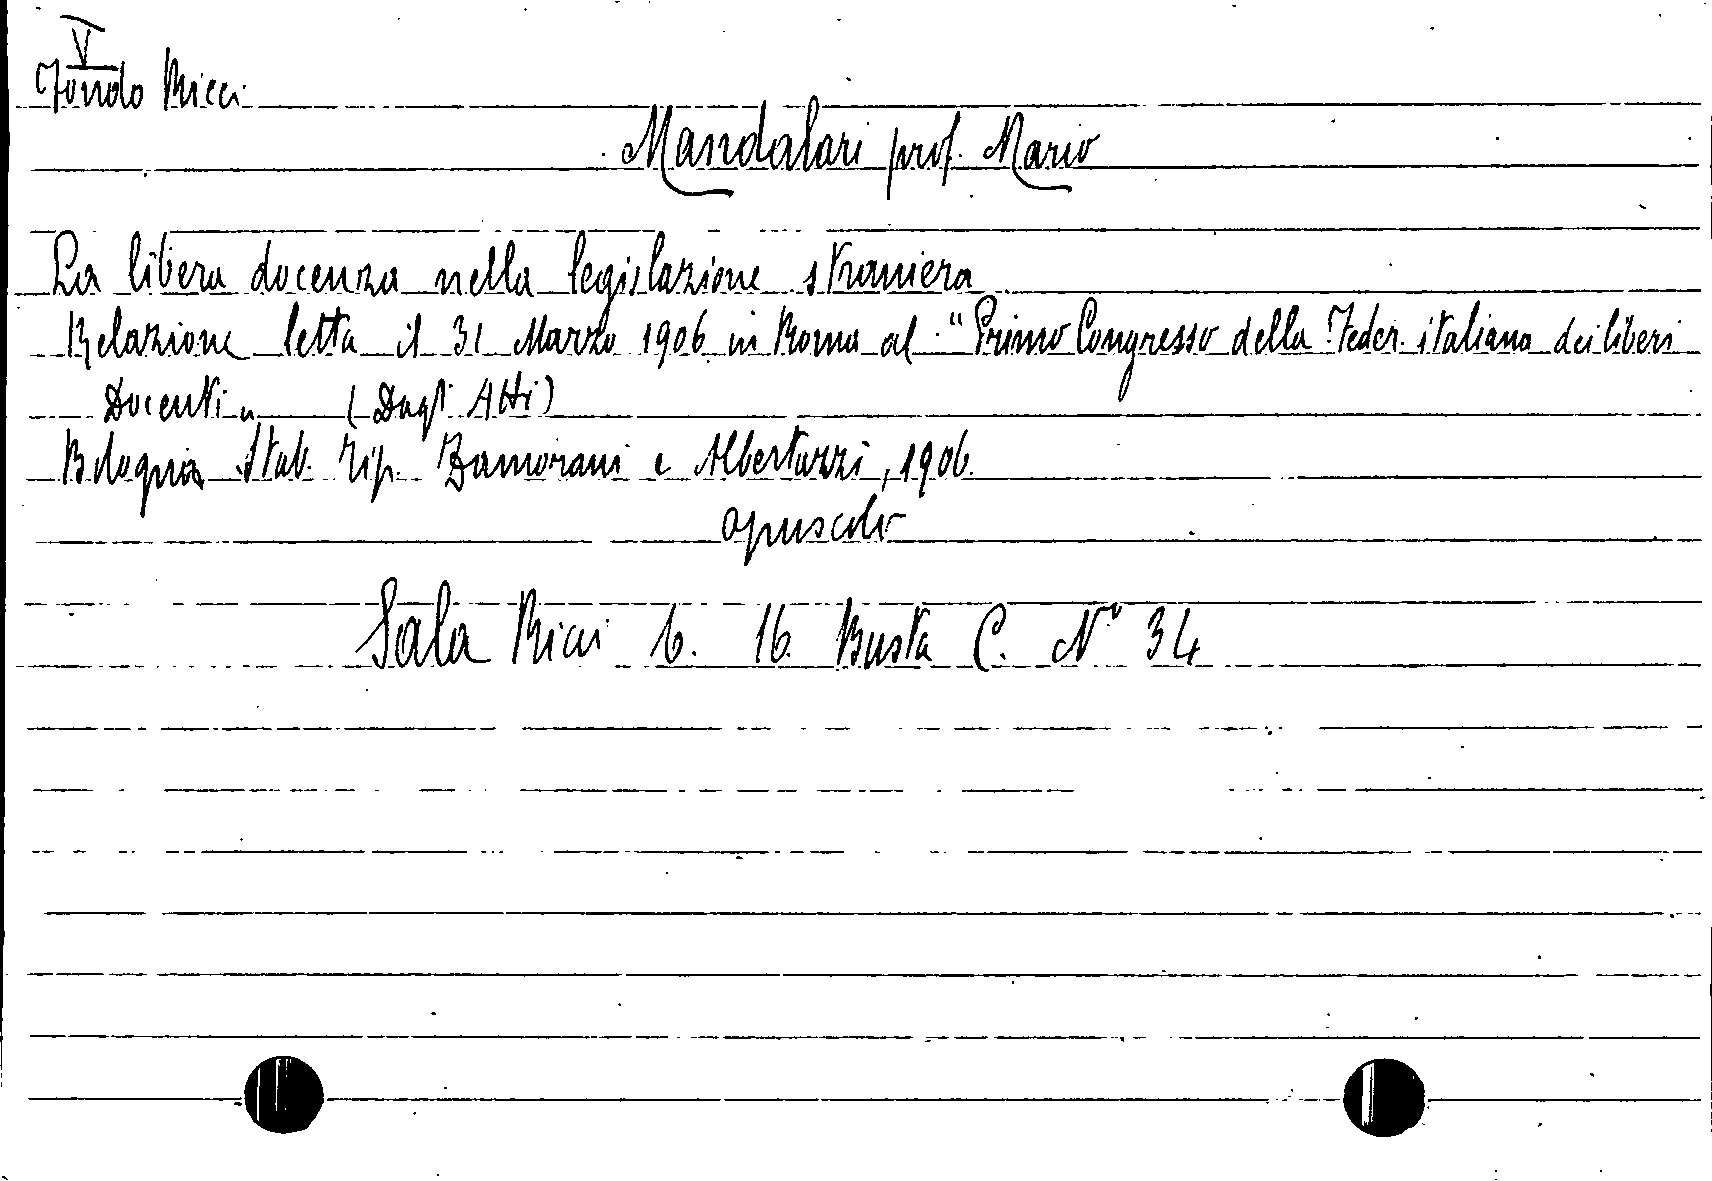 V
Fondo Ricci
Mandalari prof. Mario
La libera docenza nella legislazione straniera
Relazione letta il 31 Marzo 1906 in Roma al "Primo Congresso della Feder. italiana dei liberi
Docenti" (Dagli Atti)
Bologna Stab. Tip. Zamorani e Albertazzi, 1906.
opuscolo
Sala Ricci b. 16 Busta C. N° 34